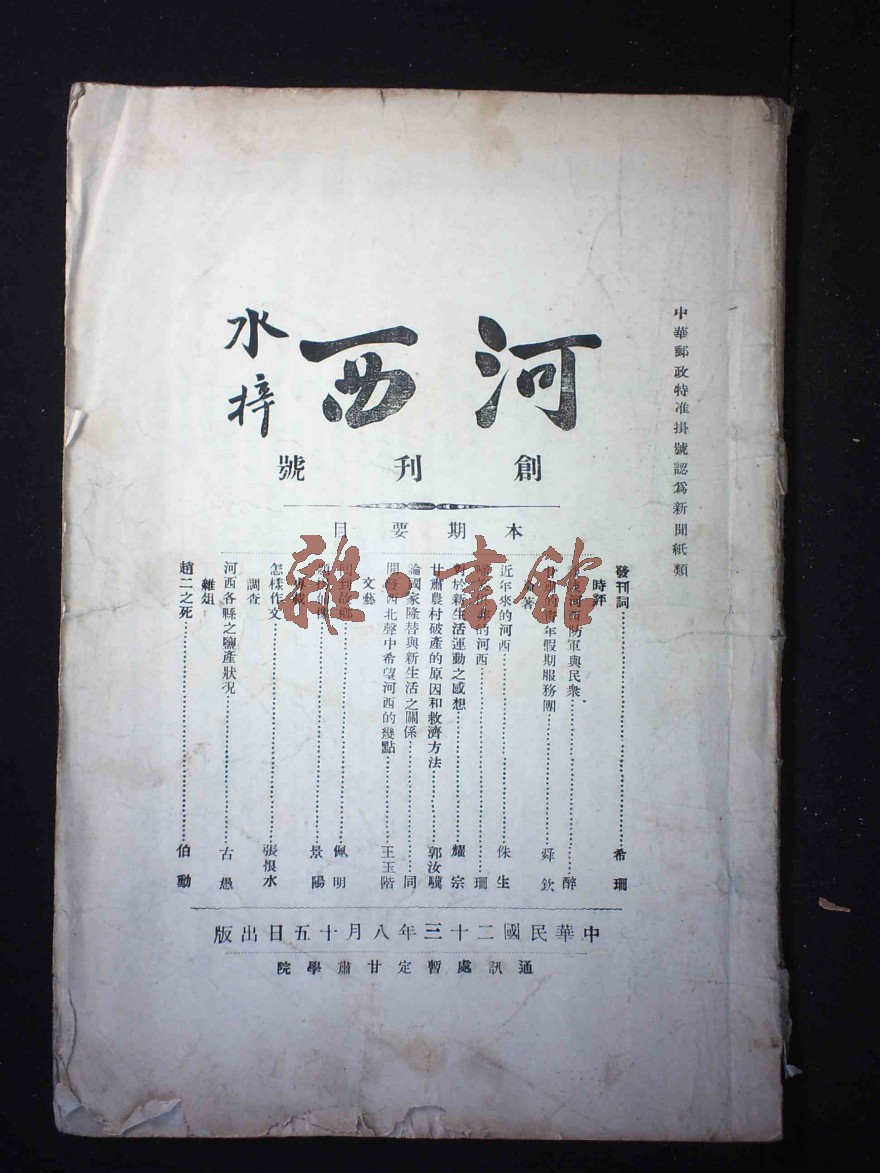 中華郵政特准掛號認爲新聞紙類
河西
水梓
創刊號
本期要目
發刊詞 希珊
時評
河西防軍與民衆 醉
青年假期服務團 舜欽
著
近年來的河西 侏生
的河西 珊
對於新生活運動之感想 耀宗
甘肅農村破產的原因和救濟方法 郭汝驥
論國家隆替與新生活之關係 同
開發西北聲中希望河西的幾點 王玉階
文藝
回到故鄉 佩明
景陽
專載
怎樣作文 張恨水
調查
河西各縣之鹽產狀況 古愚
雜俎
趙二之死 伯勳
中華民國二十三年八月十五日出版
通訊處暫定甘肅學院
雜·書館